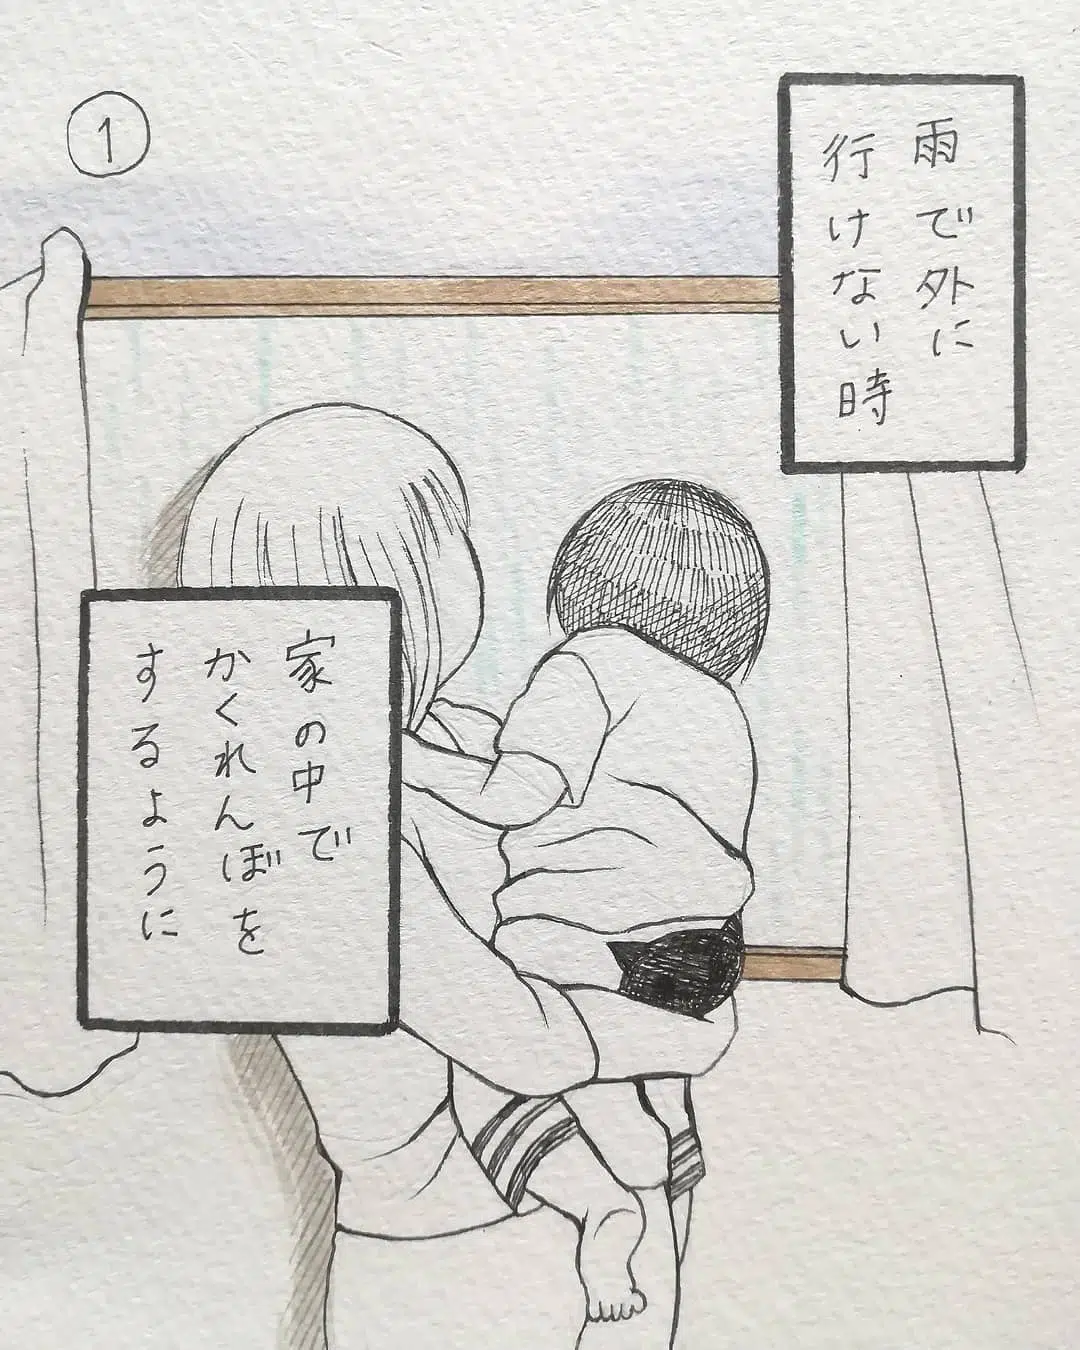 ①
雨で外に
行けない時
家の中で
かくれんぼを
するように